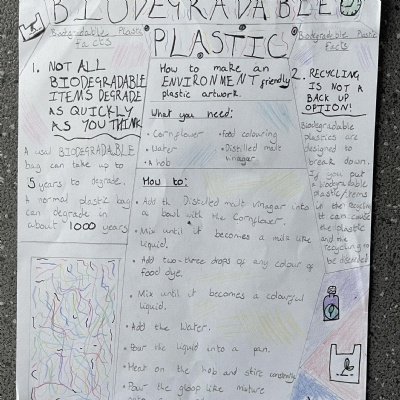 BIODEGRADABLE
PLASTIC
Biodegradable Plastic
facts
1. NOT ALL
BIODEGRADABLE
ITEMS DEGRADE
AS QUICKLY
AS YOU THINK
A usul BIODEGRADABLE
bag can take up to
5 years to degrade.
A normal plastic bag
can degrade in
about 1000 years
How to make an
ENVIRONMENT friendly
plastic artwork.
What you need:
• Cornflower • food colouring
• Water • Distilled malt
vinegar
• A hob
How to:
• Add the Distilled malt vinegar into
a bowl with the Cornflower.
• Mix until it becomes a milk like
liquid.
• Add two-three drops of any colour of
food dye.
• Mix until it becomes a colourful
liquid.
• Add the Water.
• Pour the liquid into a pan.
• Heat on the hob and stire constantly
• Pour the gloop like mixture
Biodegradable Plastic
Facts
2. RECYCLING
IS NOT A
BACK UP
OPTION!
Biodegradable
plastics are
designed to
break down.
If you put
a biodegradable
plastic items
in the recycling
it can cause
the plastic
and the
recycling to
be